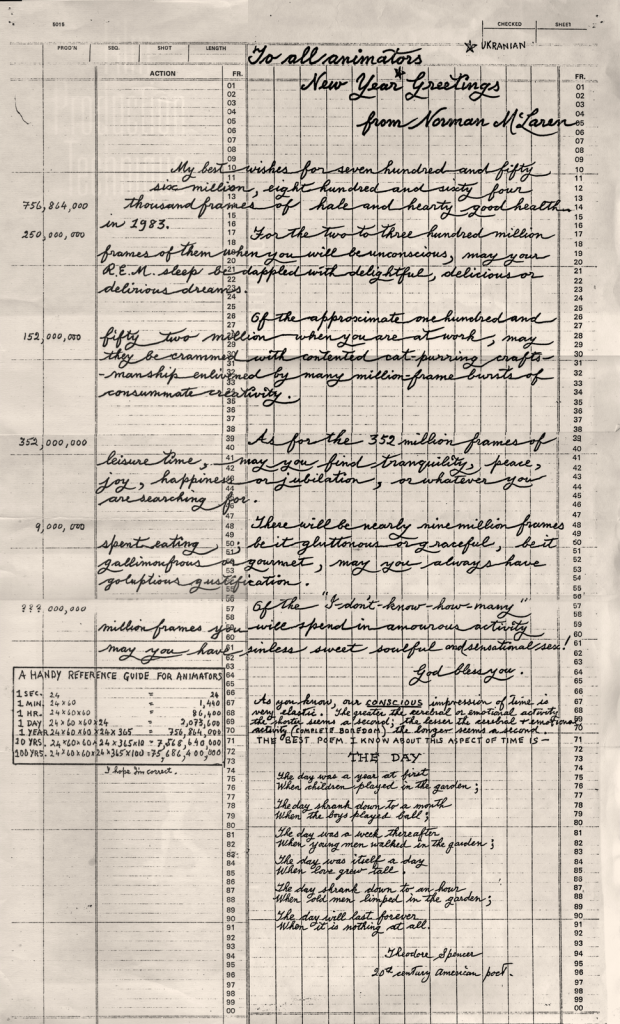 5015
CHECKED
SHEET
☆ UKRANIAN
PROD'N SEQ. SHOT LENGTH
ACTION
FR.
FR.
To all animators
☆
New Year Greetings
from Norman McLaren
My best wishes for seven hundred and fifty
six million, eight hundred and sixty four
756,864,000 thousand frames of hale and hearty good health
in 1983.
250,000,000 For the two to three hundred million
frames of them when you will be unconscious, may your
R.E.M. sleep be dappled with delightful, delicious or
delirious dreams.
Of the approximate one hundred and
152,000,000 fifty two million when you are at work, may
they be crammed with contented cat-purring crafts-
-manship enlivened by many million-frame bursts of
consummate creativity.
352,000,000 As for the 352 million frames of
leisure time, may you find tranquility, peace,
joy, happiness or jubilation, or whatever you
are searching for.
9,000,000 There will be nearly nine million frames
spent eating ; be it gluttonous or graceful, be it
gallimoufrous or gourmet, may you always have
goluptious gustification.
??? 000,000 Of the "I-don't-know-how-many"
million frames you will spend in amourous activity
may you have sinless sweet soulful and sensational sex!
God bless you.
A HANDY REFERENCE GUIDE FOR ANIMATORS
1 SEC. 24 = 24
1 MIN. 24×60 = 1,440
1 HR. 24×60×60 = 86,400
1 DAY 24×60×60×24 = 2,073,600
1 YEAR 24×60×60×24×365 = 756,864,000
10 YRS. 24×60×60×24×365×10 = 7,568,640,000
100 YRS. 24×60×60×24×365×100 = 75,686,400,000
I hope I'm correct.
As you know, our CONSCIOUS impression of time is
very elastic. The greater the cerebral or emotional activity
the shorter seems a second; the lesser the cerebral & emotional
activity (COMPLETE BOREDOM) the longer seems a second.
THE BEST POEM I KNOW ABOUT THIS ASPECT OF TIME IS —
THE DAY
The day was a year at first
When children played in the garden;
The day shrank down to a month
When the boys played ball;
The day was a week thereafter
When young men walked in the garden;
The day was itself a day
When love grew tall.
The day shrank down to an hour
When old men limped in the garden;
The day will last forever
When it is nothing at all.
Theodore Spencer
20th century American poet.